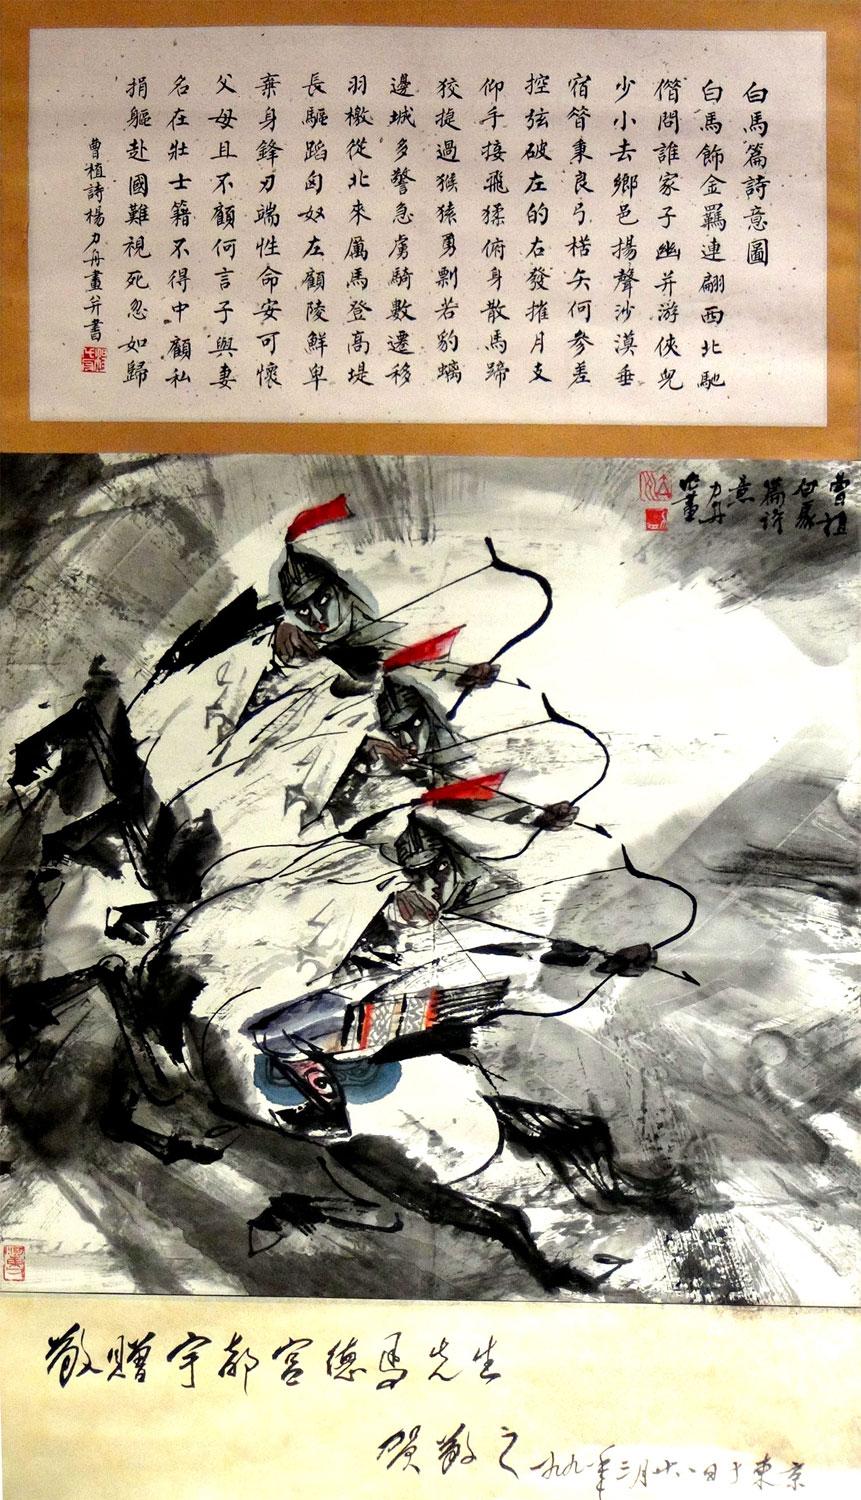 白馬篇詩意圖
白馬飾金羈連翩西北馳
借問誰家子幽并游俠兒
少小去鄉邑揚聲沙漠垂
宿昔秉良弓楛矢何參差
控弦破左的右發摧月支
仰手接飛猱俯身散馬蹄
狡捷過猴猿勇剽若豹螭
邊城多警急虜騎數遷移
羽檄從北來厲馬登高堤
長驅蹈匈奴左顧陵鮮卑
棄身鋒刃端性命安可懷
父母且不顧何言子與妻
名在壯士籍不得中顧私
捐軀赴國難視死忽如歸
曹植詩楊力舟畫并書
曹植
白馬
篇詩
意
力舟
作畫
敬赠宇都宫德马先生
贺敬之 一九九一年三月廿八日于東京